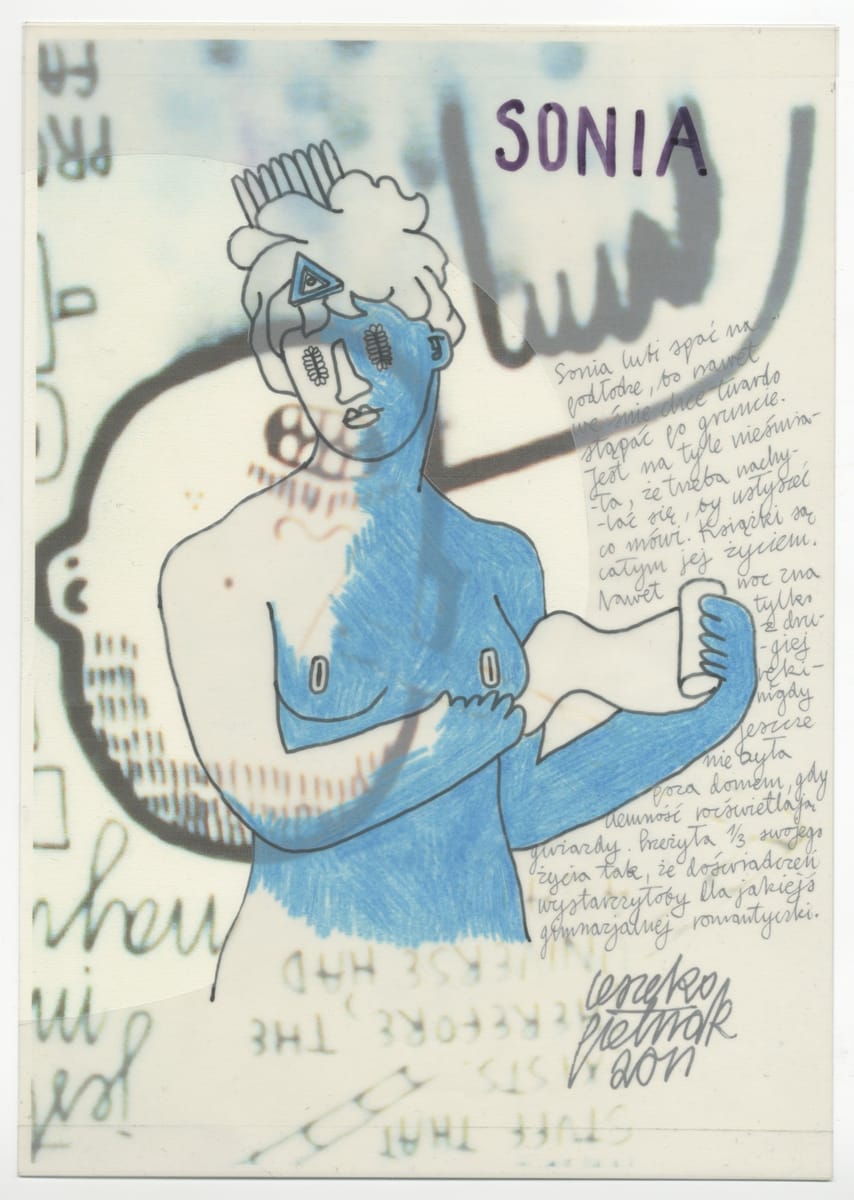 SONIA
Sonia lubi spać na
podłodze, bo nawet
we śnie chce twardo
stąpać po gruncie.
Jest na tyle nieśmia-
-ła, że trzeba nachy-
-lać się, by usłyszeć
co mówi. Książki są
całym jej życiem.
Nawet noc zna
tylko
z dru-
-giej
ręki-
nigdy
jeszcze
nie była
poza domem, gdy
ciemność rozświetlają
gwiazdy. Przeżyła 1/3 swojego
życia tak, że doświadczeń
wystarczyłoby dla jakiejś
gimnazjalnej romantyczki.
2011
jest
UNIVERSE HAD
THEREFORE, THE
STUFF THAT